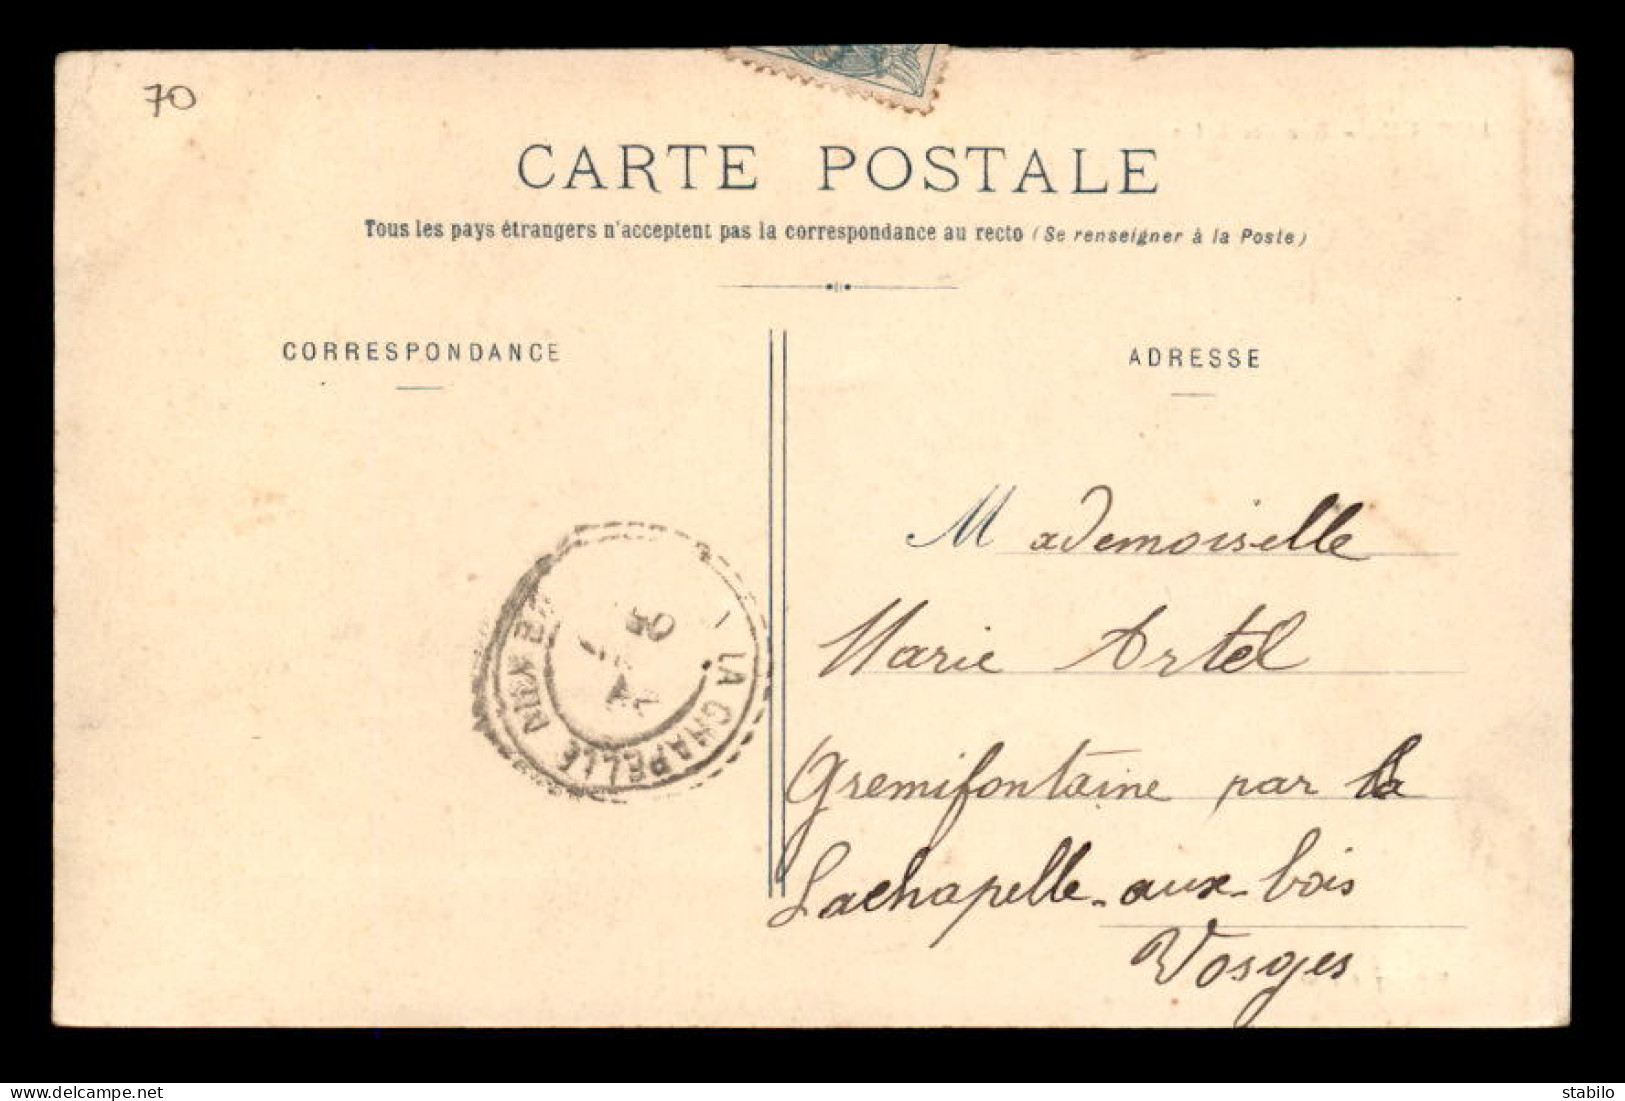 70
CARTE POSTALE
Tous les pays étrangers n'acceptent pas la correspondance au recto (Se renseigner à la Poste)
CORRESPONDANCE
ADRESSE
Mademoiselle
Marie Artel
Gremifontaine par la
Lachapelle-aux-bois
Vosges
LA CHAPELLE
05
delcampe.net
stabilo